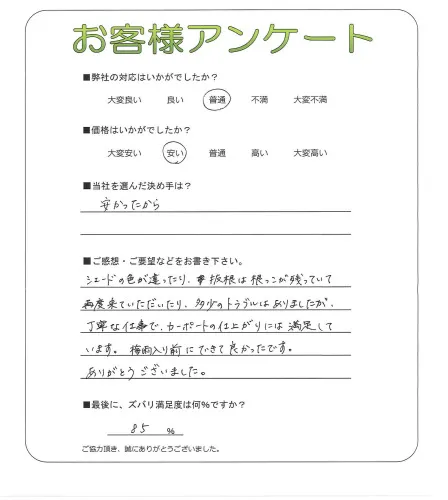 お客様アンケート
■弊社の対応はいかがでしたか？
大変良い 良い 普通 不満 大変不満
■価格はいかがでしたか？
大変安い 安い 普通 高い 大変高い
■当社を選んだ決め手は？
安かったから
■ご感想・ご要望などをお書き下さい。
シェードの色が違ったり、抜根は根っこが残っていて
再度来ていただいたり、多少のトラブルはありましたが、
丁寧な仕事で、カーポートの仕上がりには満足して
います。梅雨入り前にできて良かったです。
ありがとうございました。
■最後に、ズバリ満足度は何%ですか？
85 %
ご協力頂き、誠にありがとうございました。